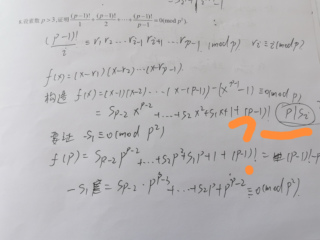 8.若素数 p>3,证明 (p-1)!/1 + (p-1)!/2 + … + (p-1)!/(p-1) ≡ 0(mod p²)
(p-1)!/i ≡ r₁ r₂ … rᵢ₋₁ rᵢ₊₁ … rₚ₋₁ (mod p) rᵢ ≡ i (mod p)
f(x) = (x-r₁)(x-r₂)…(x-rₚ₋₁)
构造 f(x) = (x-1)(x-2)…(x-(p-1)) - (x^{p-1} - 1) ≡ 0 (mod p)
= Sₚ₋₂ x^{p-2} + … + S₂x² + S₁x + 1 + (p-1)! p|Sᵢ
要证 -S₁ ≡ 0 (mod p²)
f(p) = Sₚ₋₂ p^{p-2} + … + S₂p² + S₁p + 1 + (p-1)! = (p-1)! - p
-S₁ = Sₚ₋₂ · p^{p-3} + … + S₂p + p^{p-2} ≡ 0 (mod p²)